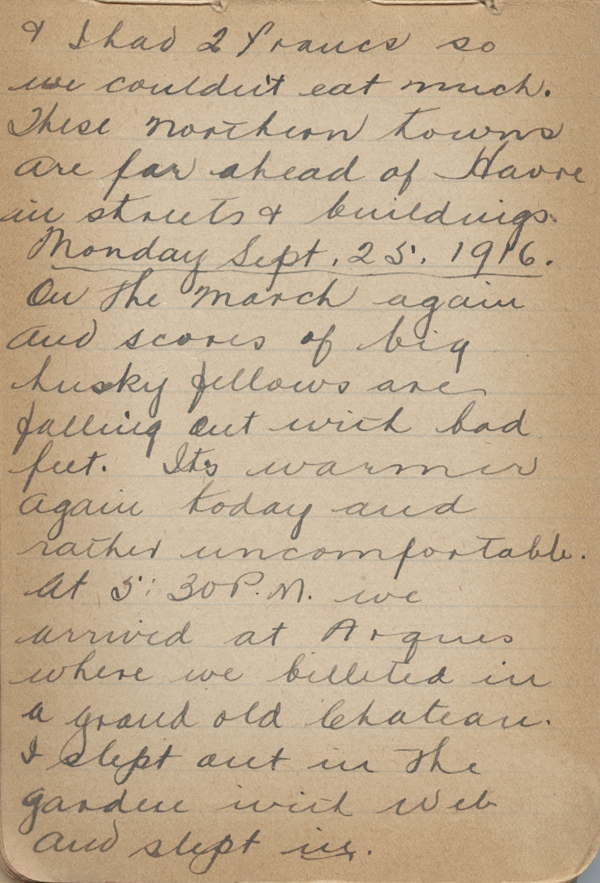 & I had 2 francs so
we couldn't eat much.
These northern towns
are far ahead of Havre
in streets & buildings.
Monday Sept. 25. 1916.
On the march again
and scores of big
husky fellows are
falling out with bad
feet. Its warmer
again today and
rather uncomfortable.
At 5:30 P.M. we
arrived at Arques
where we billeted in
a grand old Chateau.
I slept out in the
garden with Web
and slept in.